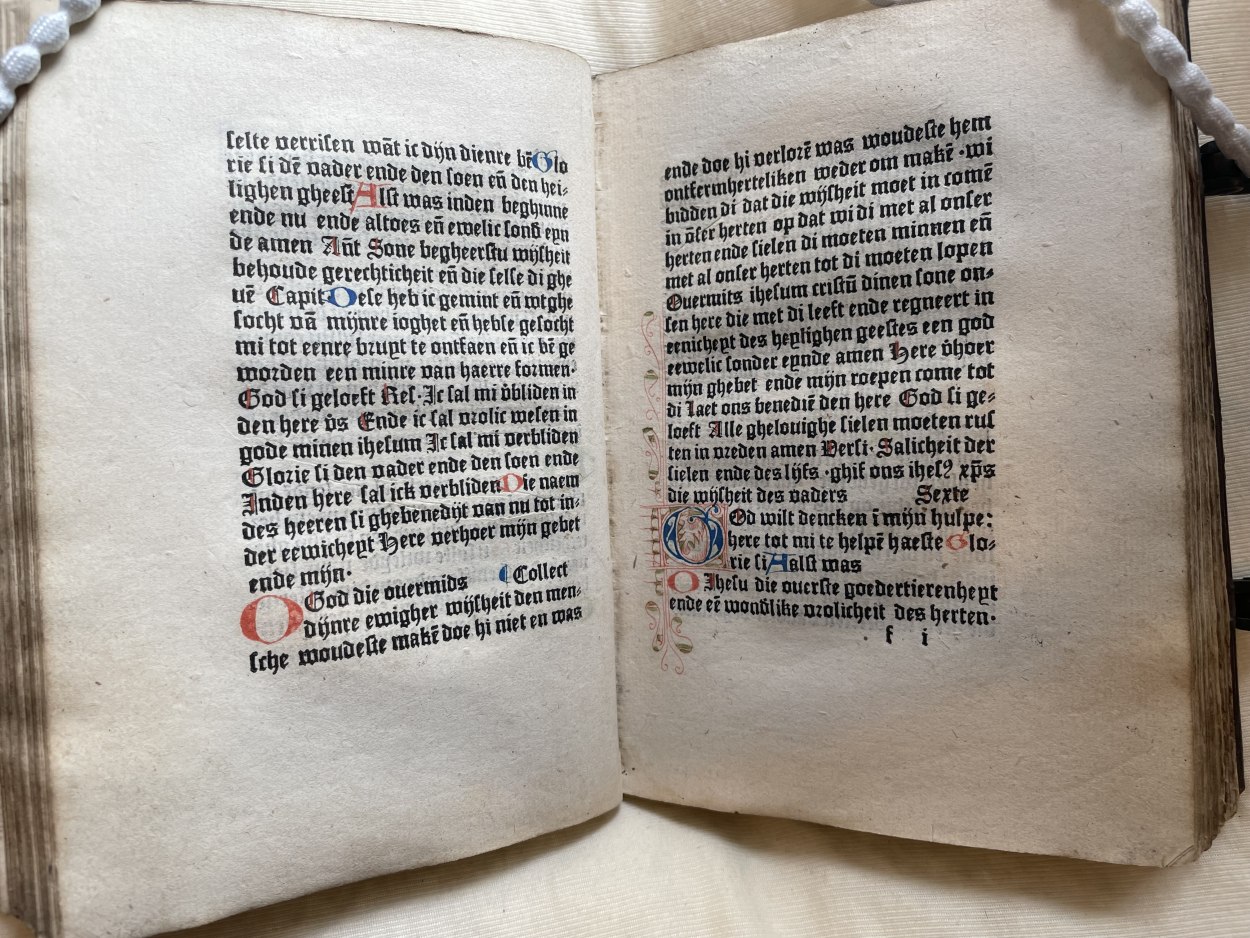 selte verrisen wāt ic dijn dienre bē Glo
rie si dē vader ende den soen eñ den hei⸗
lighen gheest Alst was inden beghinne
ende nu ende altoes eñ ewelic sond̄ eyn
de amen Añt Sone begheerstu wijsheit
behoude gerechticheit eñ die selse di ghe
uē Capit Dese heb ic gemint eñ wtghe
socht vā mijnre ioghet eñ hebse gesocht
mi tot eenre bruyt te ontfaen eñ ic bē ge
worden een minre van haerre formen·
God si geloeft Res· Jc sal mi v̄bliden in
den here v̄s Ende ic sal vrolic wesen in
gode minen ihesum Jc sal mi verbliden
Glorie si den vader ende den soen ende
Inden here sal ick verbliden Die naem
des heeren si ghebenedijt van nu tot in⸗
der eewicheyt Here verhoer mijn gebet
ende mijn·
God die ouermids Collect
O dijnre ewigher wijsheit den men⸗
sche woudeste makē doe hi niet en was
ende doe hi verlorē was woudeste hem
ontfermherteliken weder om makē ·wi
bidden di dat die wijsheit moet in comē
in ōser herten op dat wi di met al onser
herten ende sielen di moeten minnen eñ
met al onser herten tot di moeten lopen
Ouermits ihesum cristū dinen sone on⸗
sen here die met di leeft ende regneert in
eenicheyt des heylighen geestes een god
eewelic sonder eynde amen Here v̄hoer
mijn ghebet ende mijn roepen come tot
di Laet ons benediē den here God si ge⸗
loeft Alle ghelouighe sielen moeten rus
ten in vreden amen Versi· Salicheit der
sielen ende des lijfs ·ghif ons ihesꝰ xp̄s
die wijsheit des vaders Sexte
God wilt dencken ī mijn hulpe:
here tot mi te helpē haeste Glo⸗
rie si Aalst was
O Jhesu die ouerste goedertierenheyt
ende eē wond̄like vrolicheit des herten·
f i